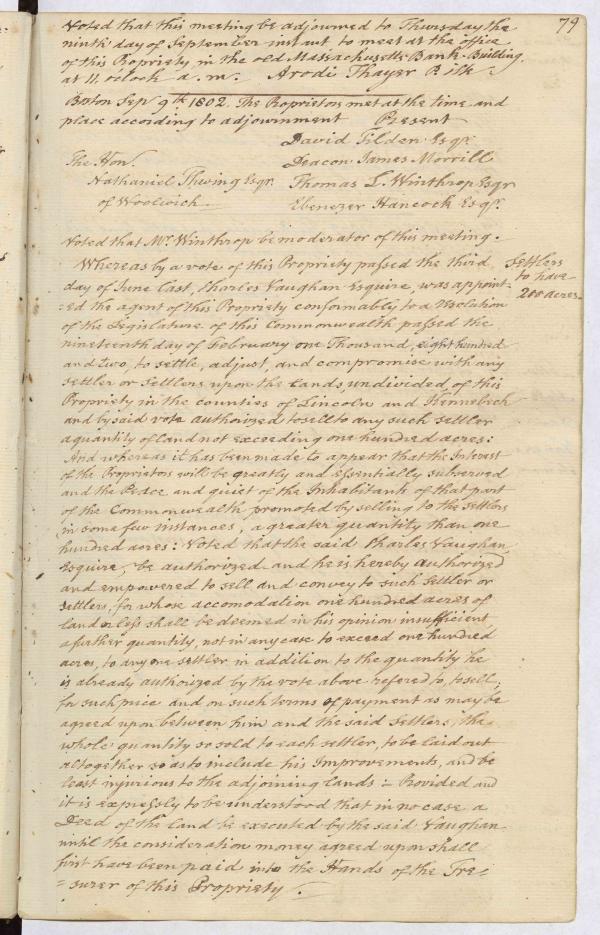 79
Voted that this meeting be adjourned to Thursday the
ninth day of September instant to meet at the office
of this Propriety in the old Massachusetts Bank-Building,
at 11. oclock a.m. Arodi Thayer P Clk
Boston Sep 9th 1802. The Proprietors met at the time and
place according to adjournment Present
David Tilden Esqr.
The Hon. Deacon James Morrill
Nathaniel Thwing Esqr. Thomas L. Winthrop Esqr
of Woolwich Ebenezer Hancock Esqr.
Voted that Mr. Winthrop be moderator of this meeting.
Whereas by a vote of this Propriety passed the third
Settlers
to have
200 acres
day of June last, Charles Vaughan Esquire, was appoint-
:ed the agent of this Propriety conformably to a Resolution
of the Legislature of this Commonwealth passed the
nineteenth day of February one Thousand, eight hundred
and two, to settle, adjust, and compromise with any
settler or settlers upon the Lands, undivided, of this
Propriety in the counties of Lincoln and Kennebeck
and by said vote authorized to sell to any such settler
a quantity of land not exceeding one hundred acres:
And whereas it has been made to appear that the Interest
of the Proprietors will be greatly and essentially subserved
and the Peace and quiet of the Inhabitants of that part
of the Commonwealth promoted by selling to the settlers
in some few instances, a greater quantity than one
hundred acres: Voted that the said Charles Vaughan
Esquire, be authorized and he is hereby authorized
and empowered to sell and convey to such settler or
settlers, for whose accomodation one hundred acres of
land or less shall be deemed in his opinion insufficient,
a further quantity, not in any case to exceed one hundred
acres, to any one settler in addition to the quantity he
is already authorized by the vote above refered to, to sell,
for such price and on such terms of payment as may be
agreed upon between him and the said settlers, the
whole quantity so sold to each settler, to be laid out
altogether so as to include his Improvements, and be
least injurious to the adjoining lands :- Provided and
it is expressly to be understood that in no case a
Deed of the land be executed by the said Vaughan
until the consideration money agreed upon shall
first have been paid into the Hands of the Trea-
=surer of this Propriety.